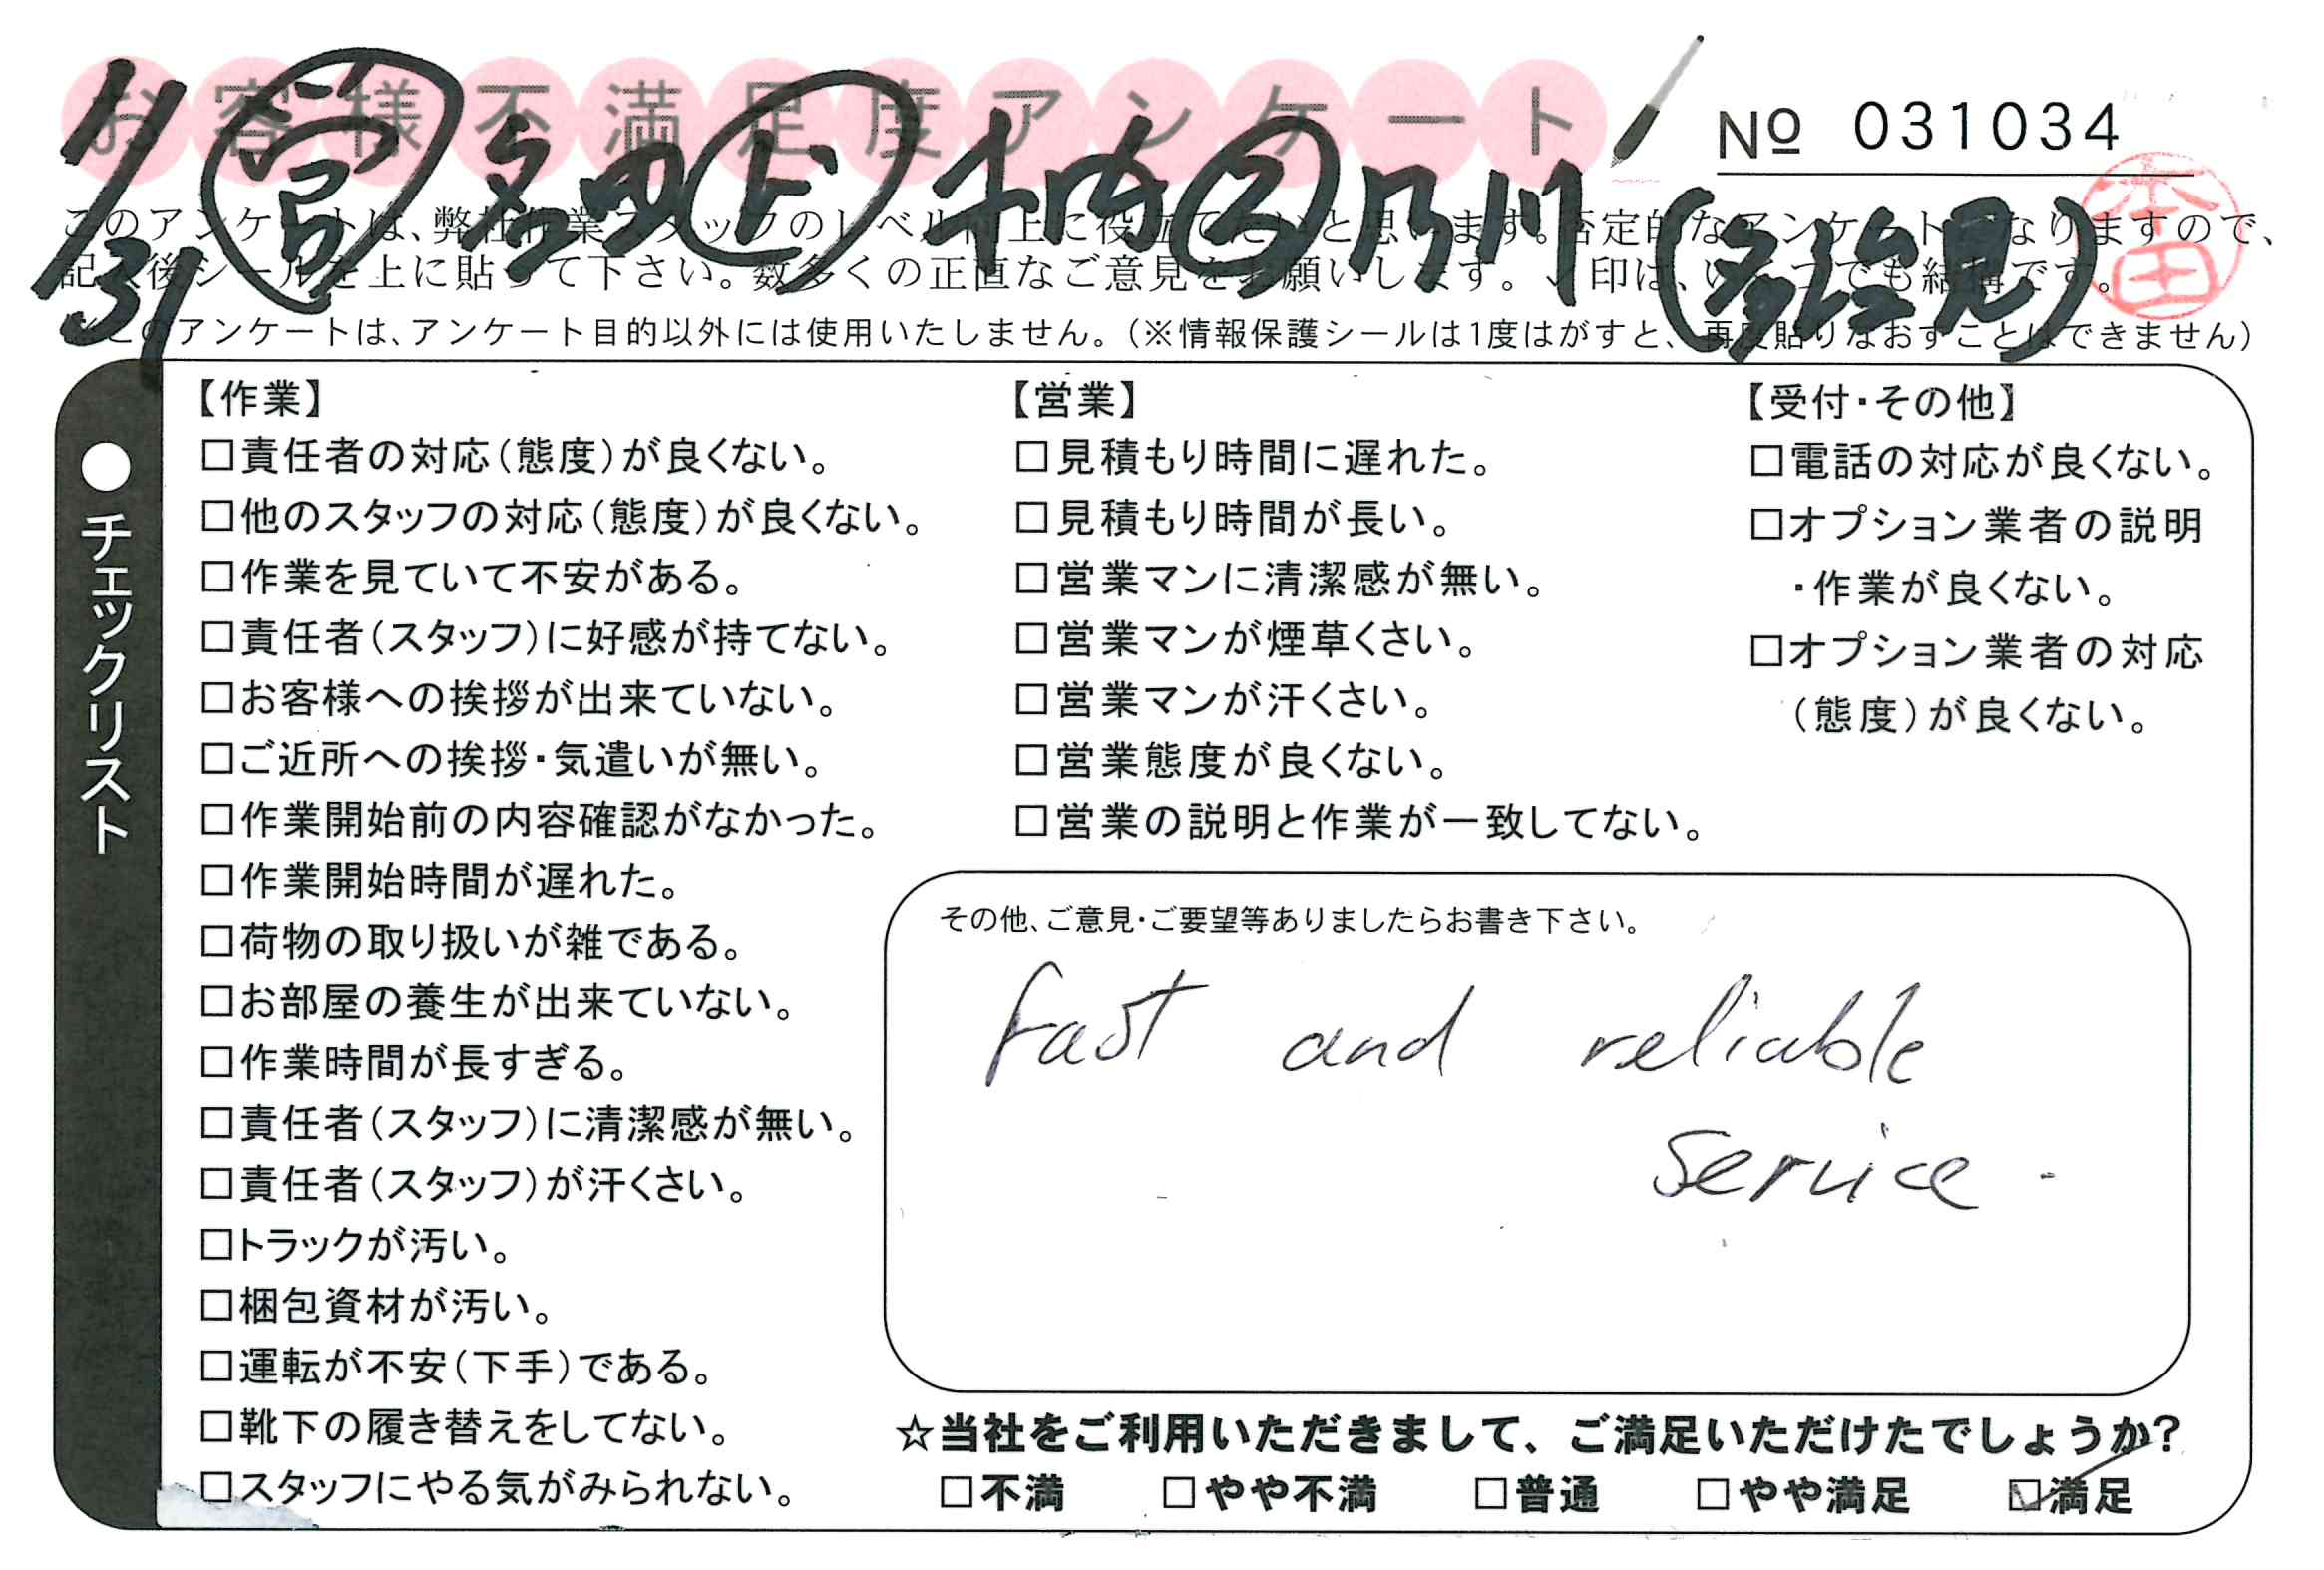 お客様不満足度アンケート
No 031034
1/31
千内
乃川
(多治見)
本田
このアンケートは、弊社作業スタッフのレベル向上に役立てたいと思います。否定的なアンケートになりますので、
記入後シールを上に貼って下さい。数多くの正直なご意見をお願いします。✓印は、いくつでも結構です。
※このアンケートは、アンケート目的以外には使用いたしません。(※情報保護シールは1度はがすと、再度貼りなおすことはできません)
●チェックリスト
【作業】
□責任者の対応(態度)が良くない。
□他のスタッフの対応(態度)が良くない。
□作業を見ていて不安がある。
□責任者(スタッフ)に好感が持てない。
□お客様への挨拶が出来ていない。
□ご近所への挨拶・気遣いが無い。
□作業開始前の内容確認がなかった。
□作業開始時間が遅れた。
□荷物の取り扱いが雑である。
□お部屋の養生が出来ていない。
□作業時間が長すぎる。
□責任者(スタッフ)に清潔感が無い。
□責任者(スタッフ)が汗くさい。
□トラックが汚い。
□梱包資材が汚い。
□運転が不安(下手)である。
□靴下の履き替えをしてない。
□スタッフにやる気がみられない。
【営業】
□見積もり時間に遅れた。
□見積もり時間が長い。
□営業マンに清潔感が無い。
□営業マンが煙草くさい。
□営業マンが汗くさい。
□営業態度が良くない。
□営業の説明と作業が一致してない。
【受付・その他】
□電話の対応が良くない。
□オプション業者の説明
・作業が良くない。
□オプション業者の対応
(態度)が良くない。
その他、ご意見・ご要望等ありましたらお書き下さい。
fast and reliable
service.
☆当社をご利用いただきまして、ご満足いただけたでしょうか?
□不満 □やや不満 □普通 □やや満足 ☑満足